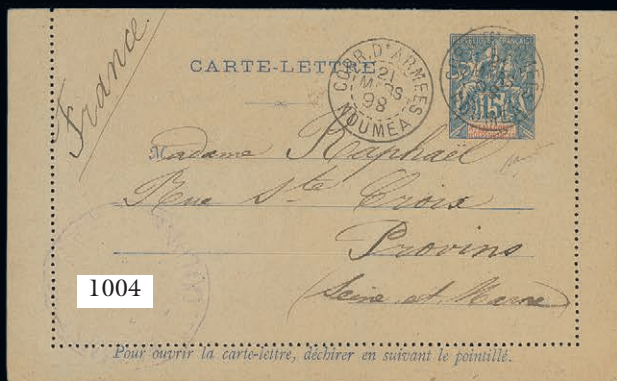 France
CARTE-LETTRE
CORR. D'ARMEES
21
MARS
98
NOUMEA
15
Madame Raphaël
Rue Ste Croix
Provins
(Seine et Marne)
1004
Pour ouvrir la carte-lettre, déchirer en suivant le pointillé.